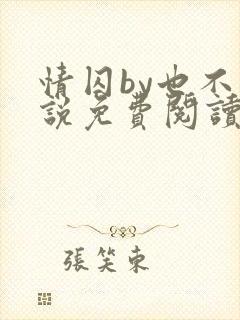 情囚by也不
說免費閱讀
張笑東